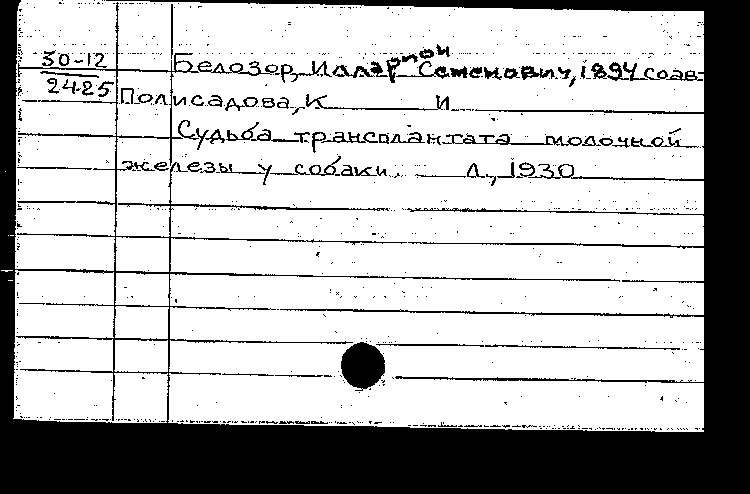 30-12
2425
Белозор, Илларион Семенович, 1894 соав-
Полисадова, К И
Судьба трансплантата молочной
железы у собаки. - Л., 1930